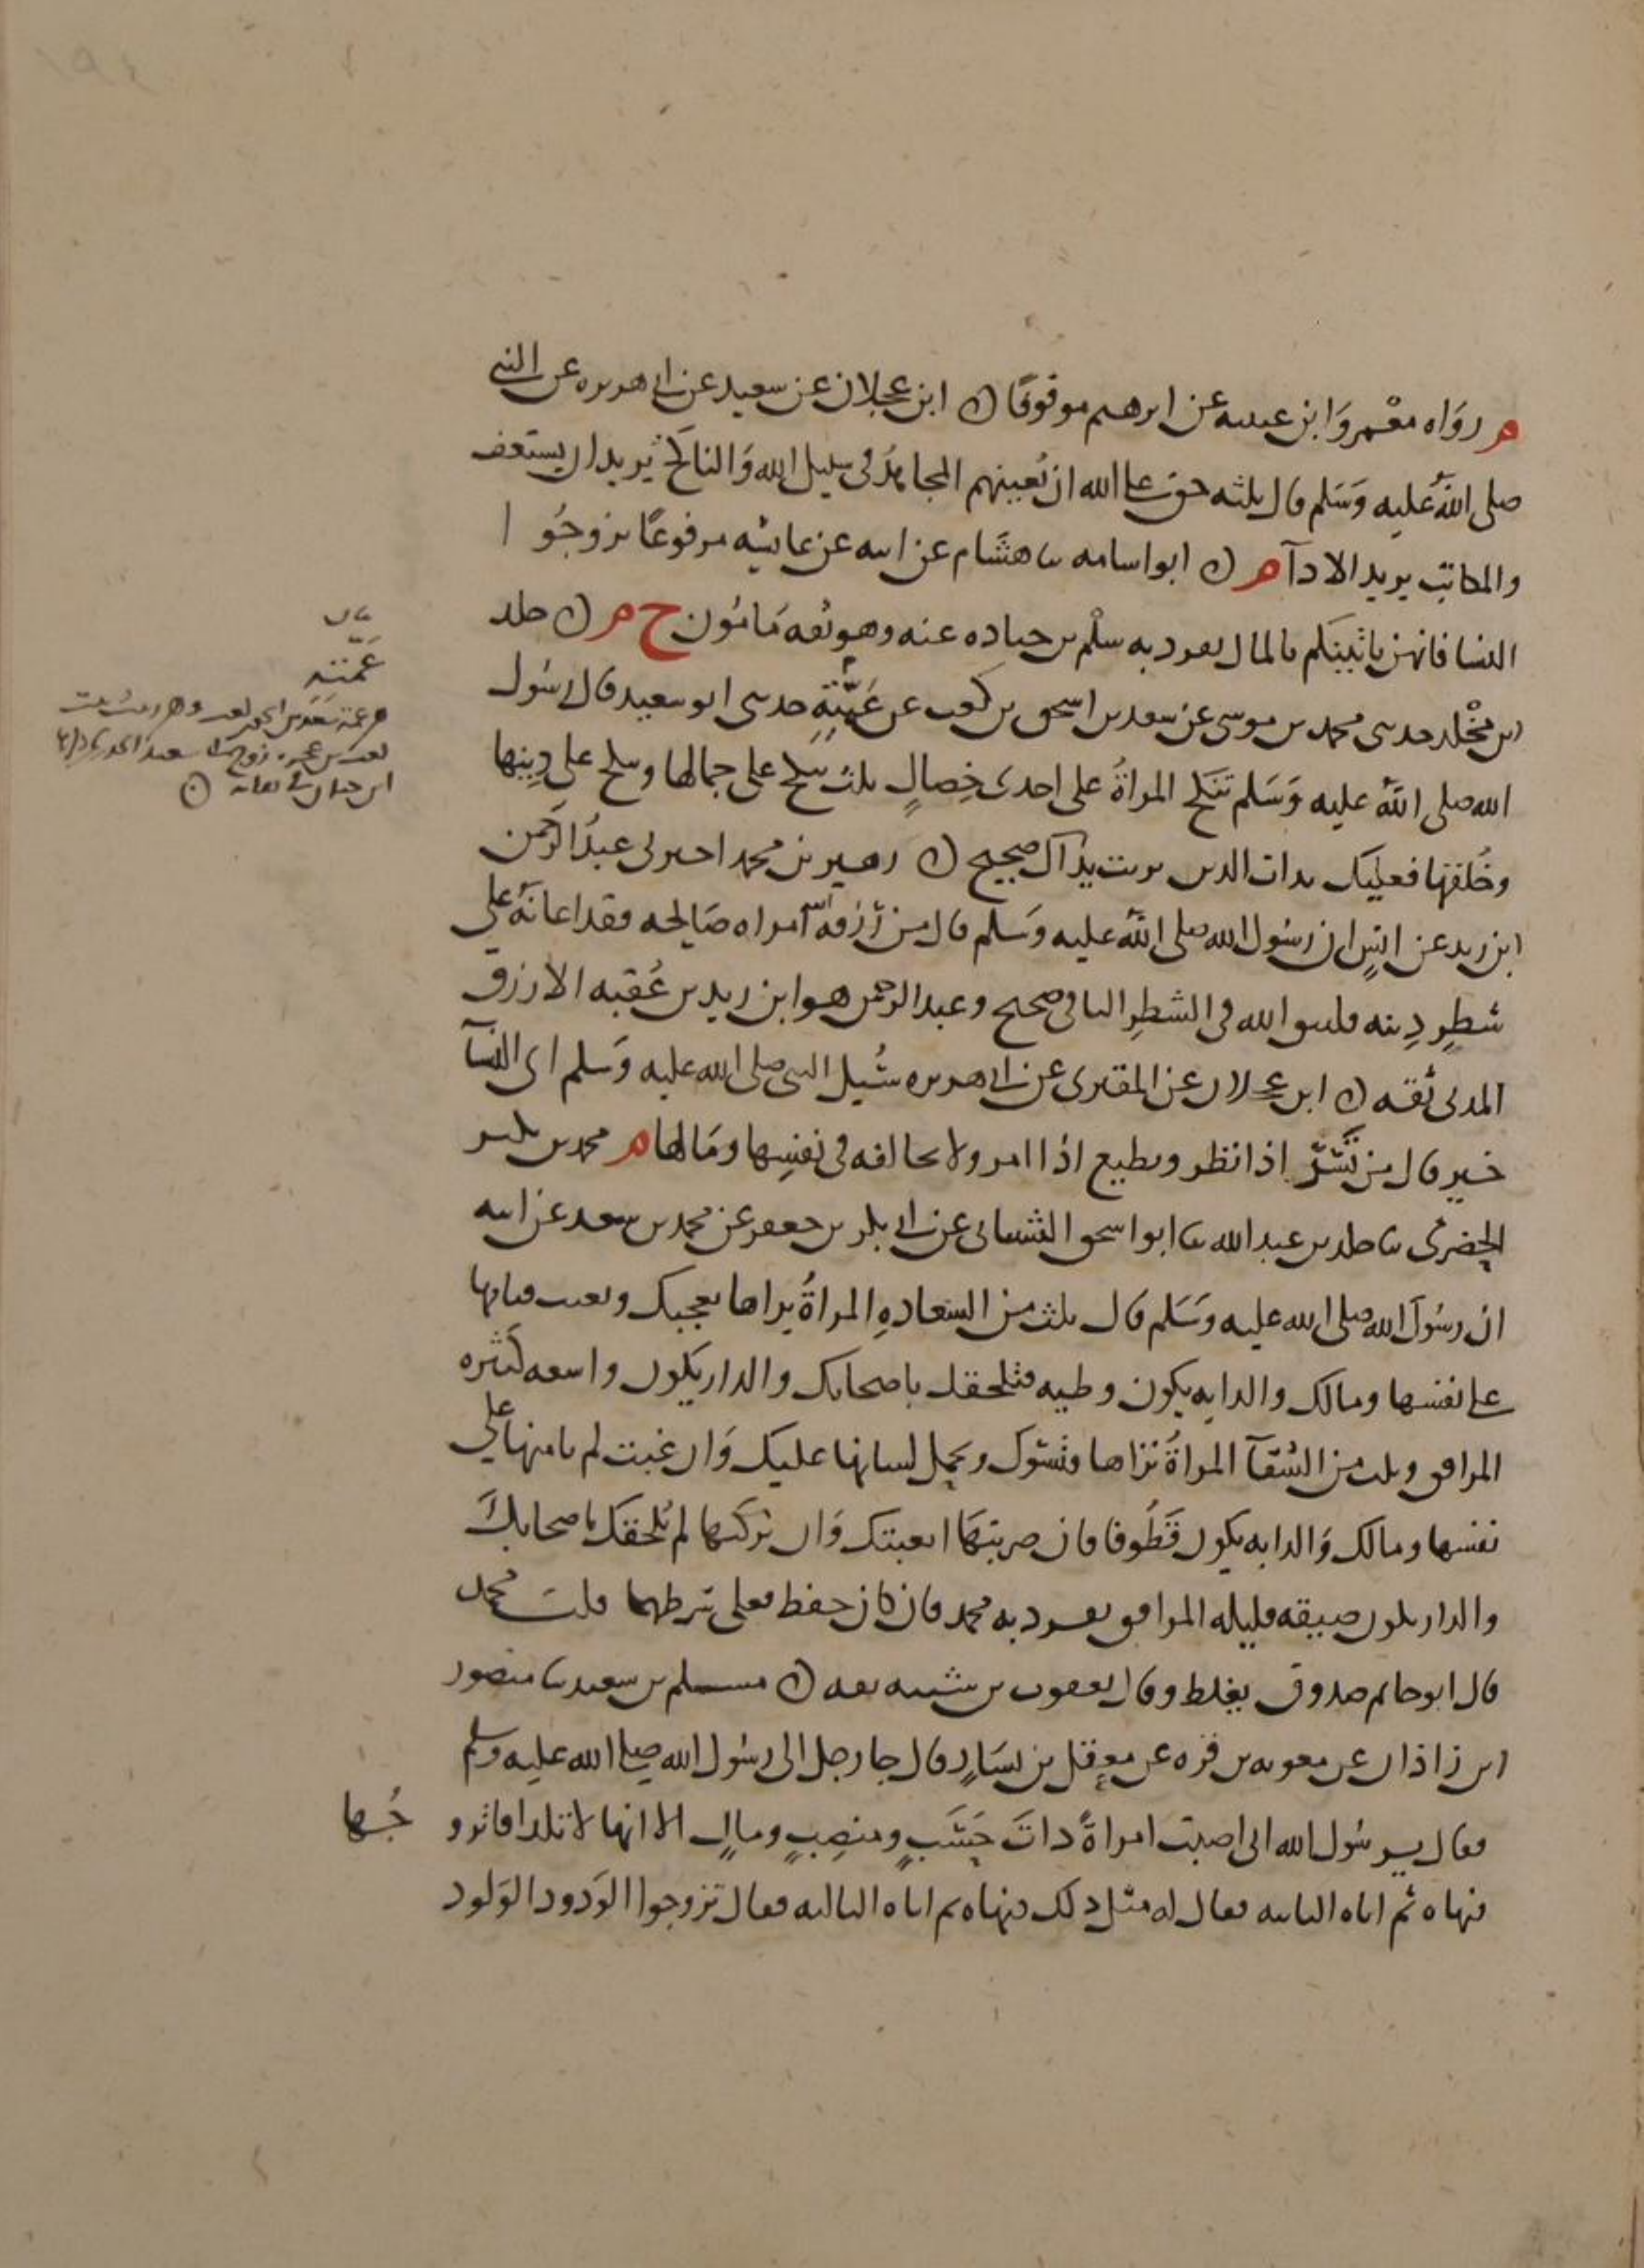 م رواه معمر وابن عيينه عن ابرهيم موقوفا ن ابن عجلان عن سعيد عن ابي هريره عن النبي
صلى الله عليه وسلم قال ثلثه حق على الله ان يعينهم المجاهد في سبيل الله والناكح يريد ان يستعف
والمكاتب يريد الادآ م ن ابو اسامه ثنا هشام عن ابيه عن عائشه مرفوعا تزوجوا
النسا فانهن ياتينكم بالمال تفرد به سلم بن جناده عنه وهو ثقه مامون خ م ن خلد
ابن مخلد حدثني محمد بن موسى عن سعد بن اسحق بن كعب عن عمته حدثني ابو سعيد قال رسول
الله صلى الله عليه وسلم تنكح المراة على احدى خصال ثلث تنكح على جمالها وتنكح على دينها
وخلقها فعليك بذات الدين تربت يداك صحيح ن زهير بن محمد اخبرني عبد الرحمن
ابن زيد عن انس ان رسول الله صلى الله عليه وسلم قال من رزقه الله امراه صالحه فقد اعانه على
شطر دينه فليتق الله في الشطر الباقي صحيح وعبد الرحمن هو ابن زيد بن عقبه الازرق
المدني ثقه ن ابن عجلان عن المقبري عن ابي هريره سئل النبي صلى الله عليه وسلم اى النسآ
خير قال من تسر اذا نظر وتطيع اذا امر ولا تخالفه في نفسها ومالها م محمد بن بكير
الحضرمي ثنا خلد بن عبد الله ثنا ابو اسحق الشيباني عن ابي بكر بن حفص عن محمد بن سعد عن ابيه
ان رسول الله صلى الله عليه وسلم قال ثلث من السعاده المراة يراها تعجبك وتغيب فتامنها
على نفسها ومالك والدابه يكون وطيه فتلحقك باصحابك والدار يكون واسعه كثيره
المرافق وثلث من الشقآ المراة تراها فتسوك وتحمل لسانها عليك وان غبت لم تامنها على
نفسها ومالك والدابه يكون قطوفا فان ضربتها اتعبتك وان تركتها لم تلحقك باصحابك
والدار يكون ضيقه قليله المرافق تفرد به محمد فان كان حفظ فعلى شرطهما قلت محمد
قال ابو حاتم صدوق يغلط وقال يعقوب بن شيبه ثقه ن مسلم بن سعيد ثنا منصور
ابن زاذان عن معويه بن قره عن معقل بن يسار قال جا رجل الى رسول الله صلى الله عليه وسلم
فقال يرسول الله اني اصبت امراة ذات حسب ومنصب ومال الا انها لا تلد افاتزو جها
فنهاه ثم اتاه الثانيه فقال له مثل ذلك فنهاه ثم اتاه الثالثه فقال تزوجوا الودود الولود
عمته
هي عمة سعد بن اسحق بن كعب وهي زينب بنت
كعب بن عجره زوج ابي سعيد الخدري ذكرها
ابن حبان في ثقاته ن